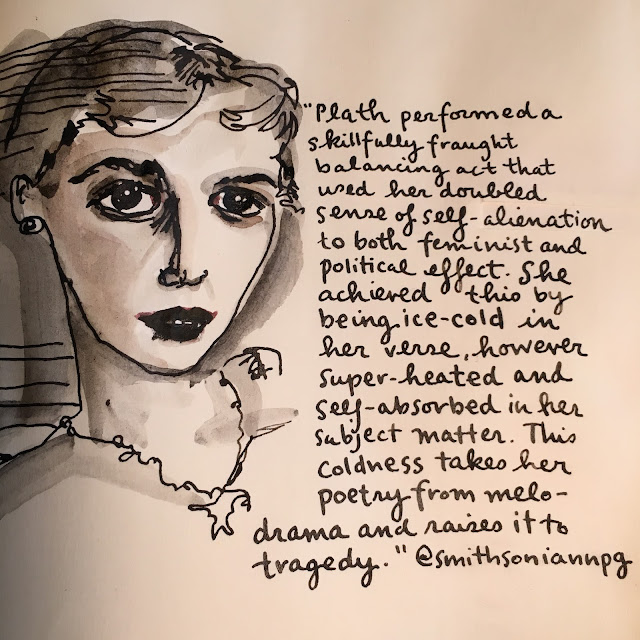 "Plath performed a
skillfully fraught
balancing act that
used her doubled
sense of self-alienation
to both feminist and
political effect. She
achieved this by
being ice-cold in
her verse, however
super-heated and
self-absorbed in her
subject matter. This
coldness takes her
poetry from melo-
drama and raises it to
tragedy." @smithsoniannpg